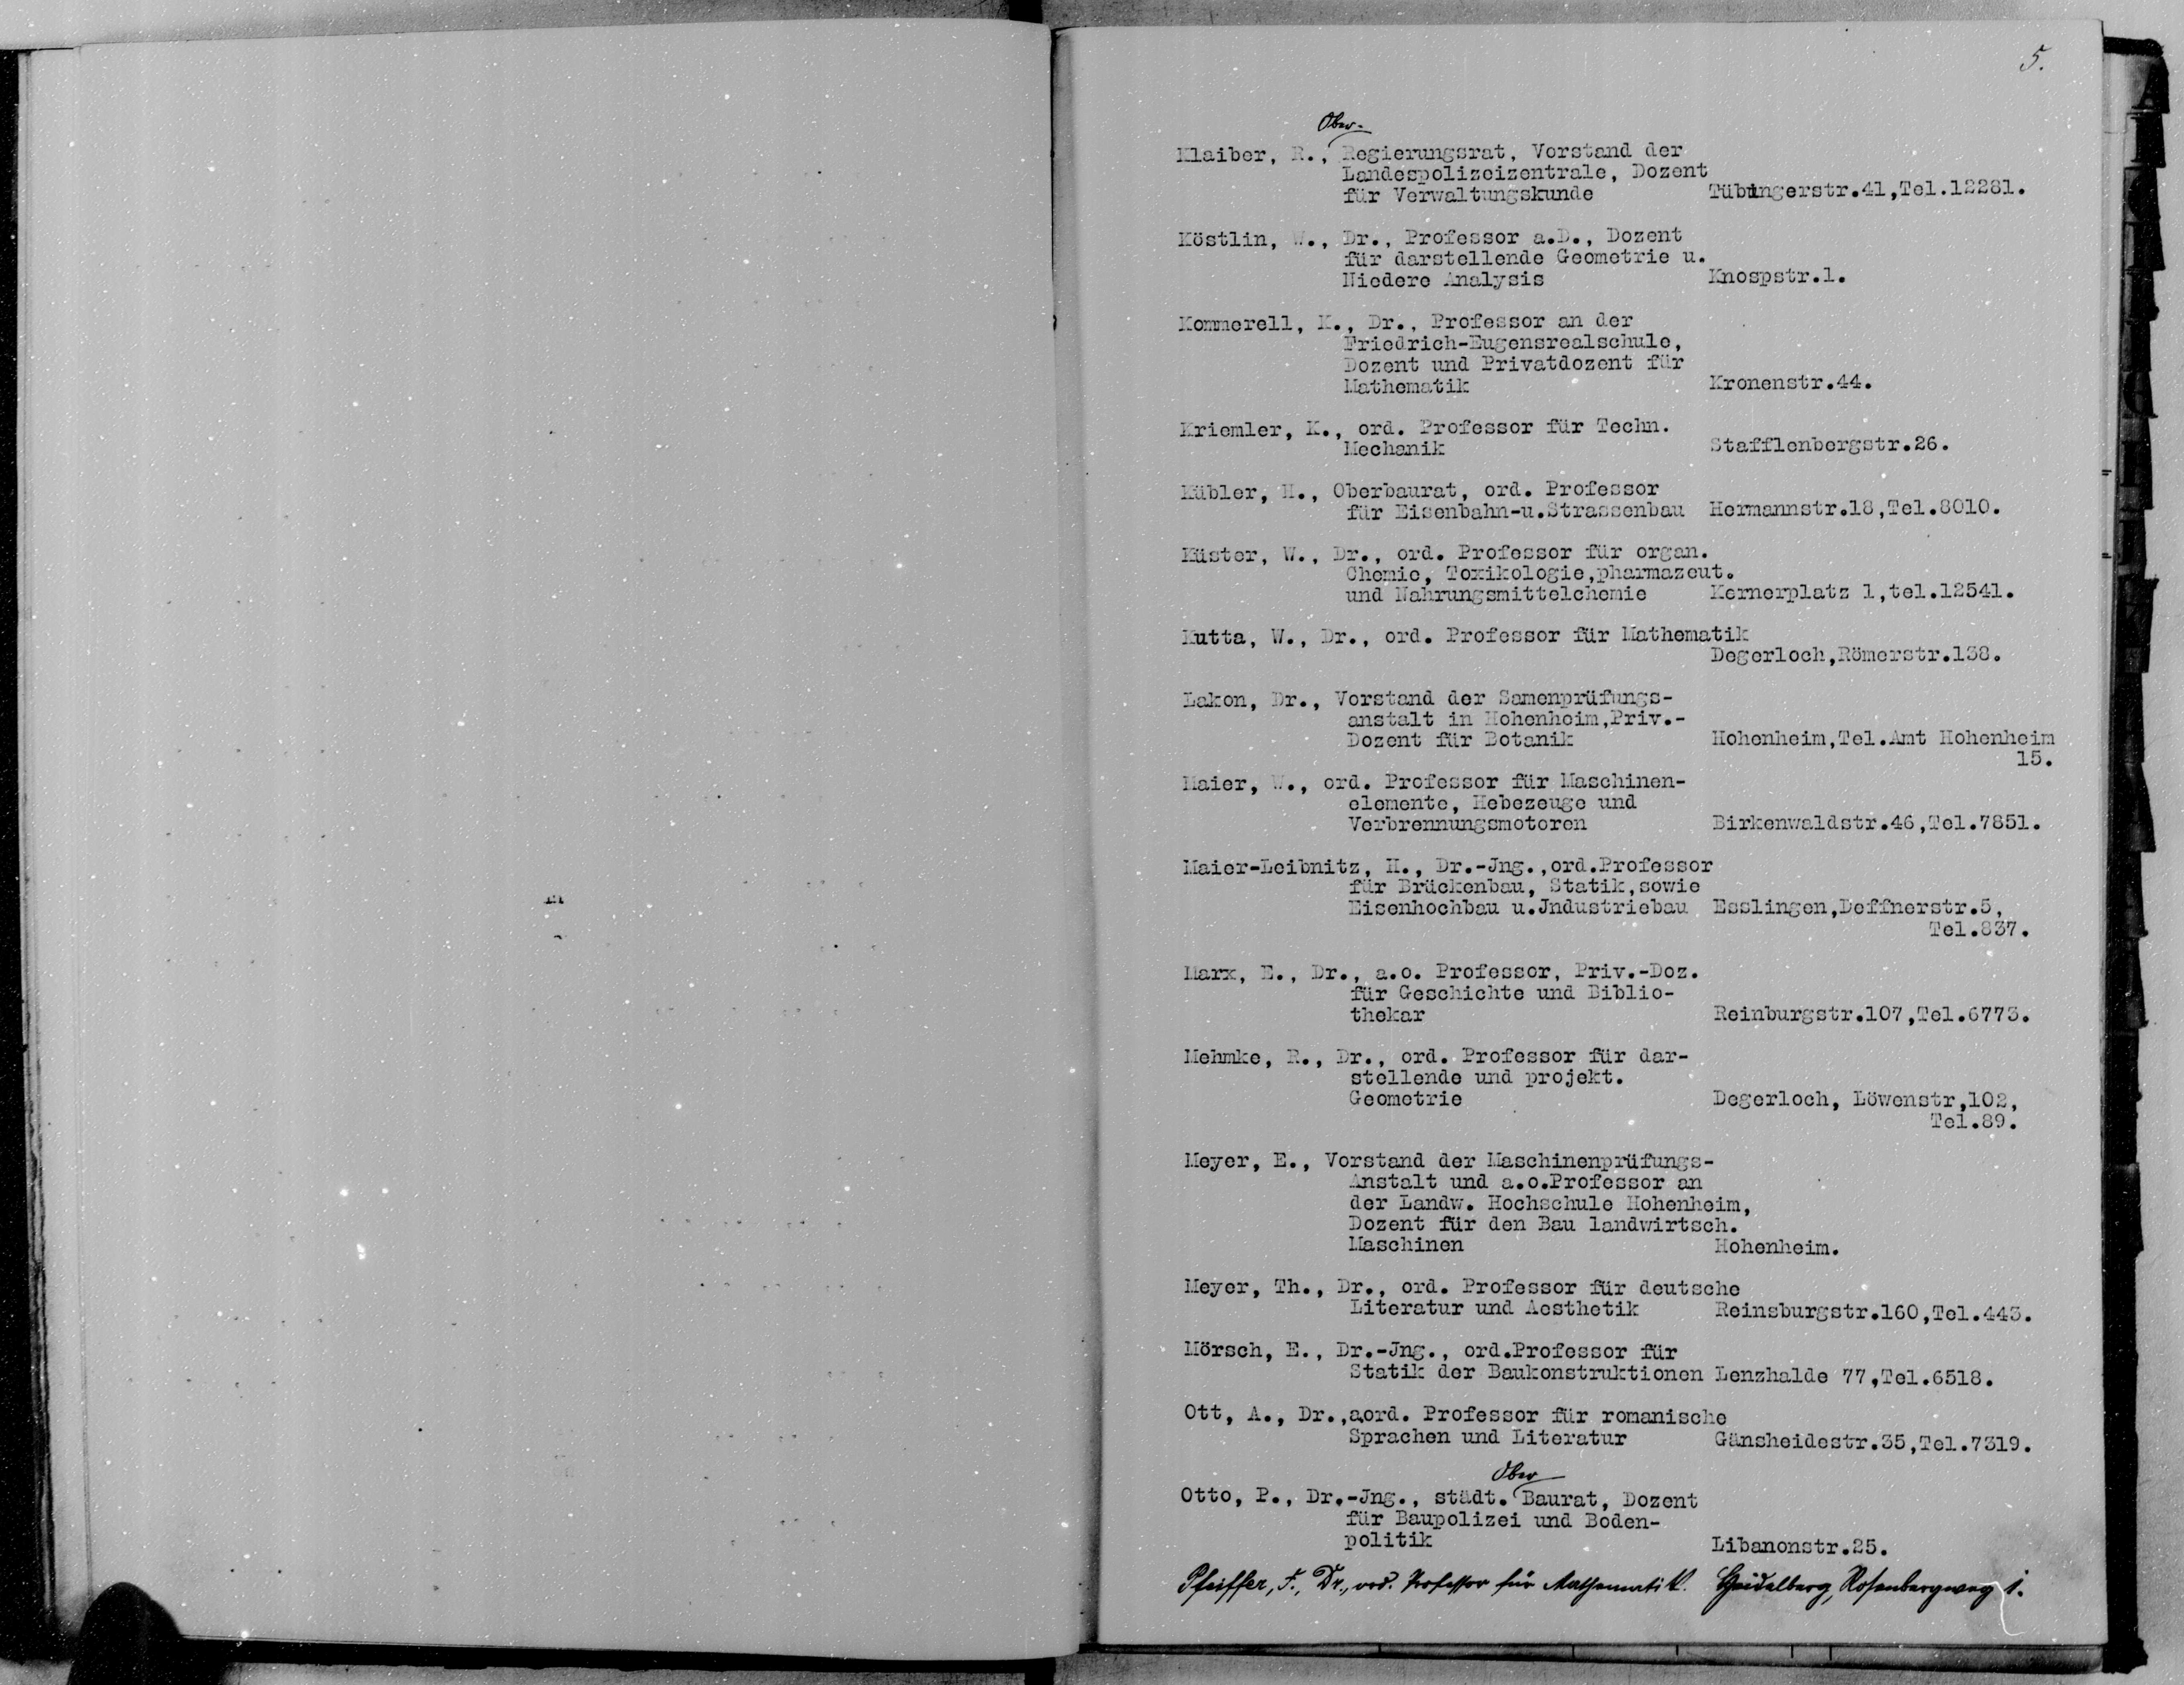 5.
Ober-
Klaiber, R., Regierungsrat, Vorstand der
Landespolizeizentrale, Dozent
für Verwaltungskunde Tübingerstr.41,Tel.12281.
Köstlin, W., Dr., Professor a.D., Dozent
für darstellende Geometrie u.
Niedere Analysis Knospstr.1.
Kommerell, K., Dr., Professor an der
Friedrich-Eugensrealschule,
Dozent und Privatdozent für
Mathematik Kronenstr.44.
Kriemler, K., ord. Professor für Techn.
Mechanik Stafflenbergstr.26.
Kübler, H., Oberbaurat, ord. Professor
für Eisenbahn-u.Strassenbau Hermannstr.18,Tel.8010.
Küster, W., Dr., ord. Professor für organ.
Chemie, Toxikologie,pharmazeut.
und Nahrungsmittelchemie Kernerplatz 1,tel.12541.
Kutta, W., Dr., ord. Professor für Mathematik
Degerloch,Römerstr.138.
Lakon, Dr., Vorstand der Samenprüfungs-
anstalt in Hohenheim,Priv.-
Dozent für Botanik Hohenheim,Tel.Amt Hohenheim
15.
Maier, W., ord. Professor für Maschinen-
elemente, Hebezeuge und
Verbrennungsmotoren Birkenwaldstr.46,Tel.7851.
Maier-Leibnitz, H., Dr.-Jng.,ord.Professor
für Brückenbau, Statik,sowie
Eisenhochbau u.Jndustriebau Esslingen,Deffnerstr.5,
Tel.837.
Marx, E., Dr., a.o. Professor, Priv.-Doz.
für Geschichte und Biblio-
thekar Reinburgstr.107,Tel.6773.
Mehmke, R., Dr., ord. Professor für dar-
stellende und projekt.
Geometrie Degerloch, Löwenstr,102,
Tel.89.
Meyer, E., Vorstand der Maschinenprüfungs-
Anstalt und a.o.Professor an
der Landw. Hochschule Hohenheim,
Dozent für den Bau landwirtsch.
Maschinen Hohenheim.
Meyer, Th., Dr., ord. Professor für deutsche
Literatur und Aesthetik Reinsburgstr.160,Tel.443.
Mörsch, E., Dr.-Jng., ord.Professor für
Statik der Baukonstruktionen Lenzhalde 77,Tel.6518.
Ott, A., Dr.,aord. Professor für romanische
Sprachen und Literatur Gänsheidestr.35,Tel.7319.
Ober
Otto, P., Dr.-Jng., städt. Baurat, Dozent
für Baupolizei und Boden-
politik Libanonstr.25.
Pfeiffer, F., Dr., ord. Professor für Mathematik. Heidelberg, Rosenbergweg 1.